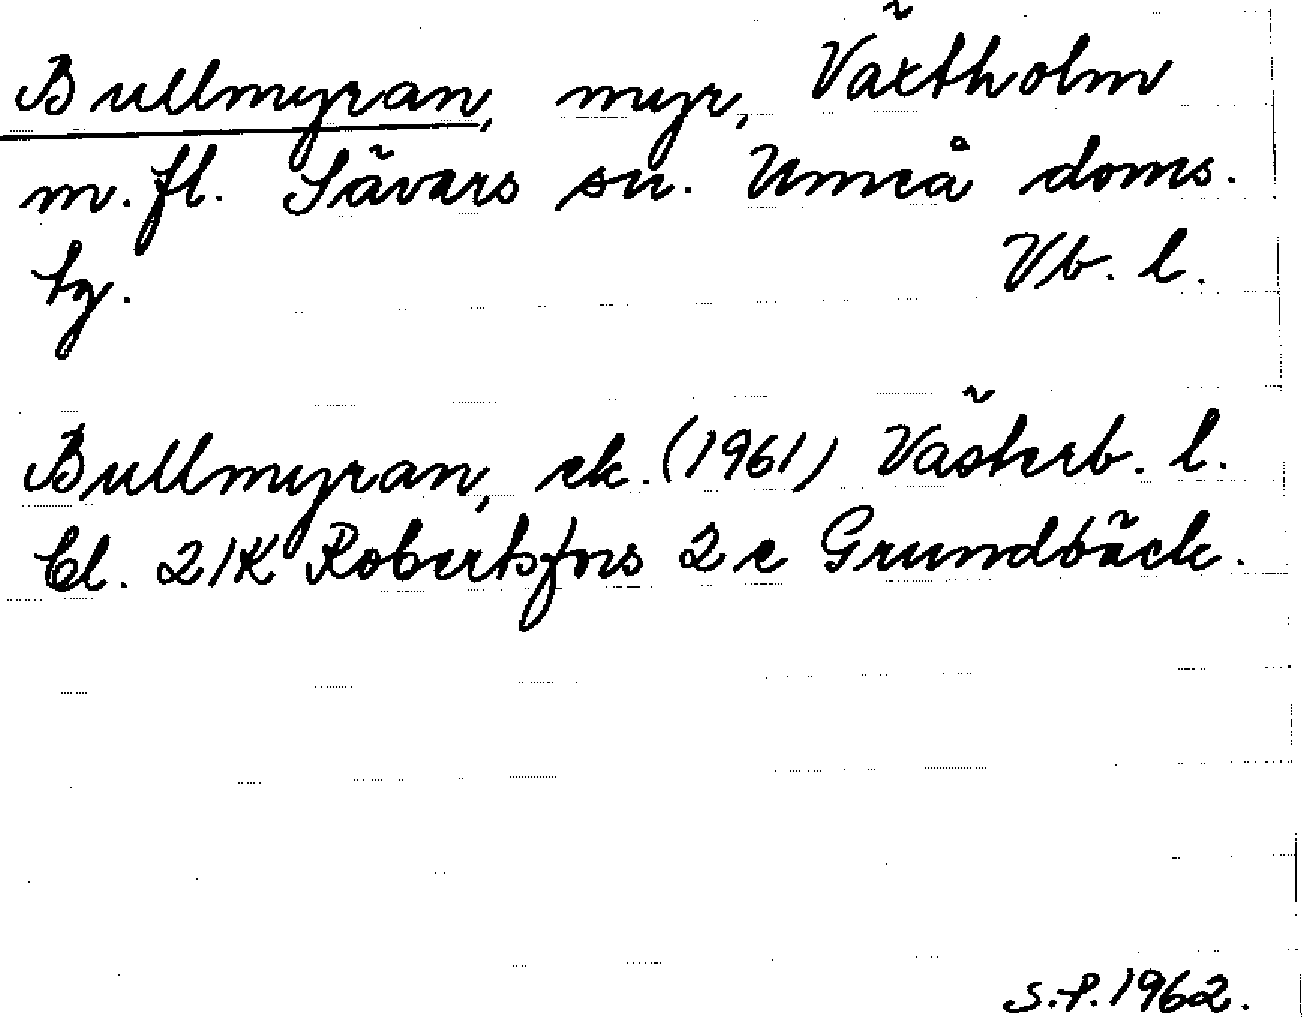 Bullmyran, myr, Växtholm
m. fl. Sävars sn. Umeå doms.
tg. Vb. l.
Bullmyran, ek. (1961) Västerb. l.
bl. 21K Robertsfors 2 e Grundbäck.
S.P. 1962.